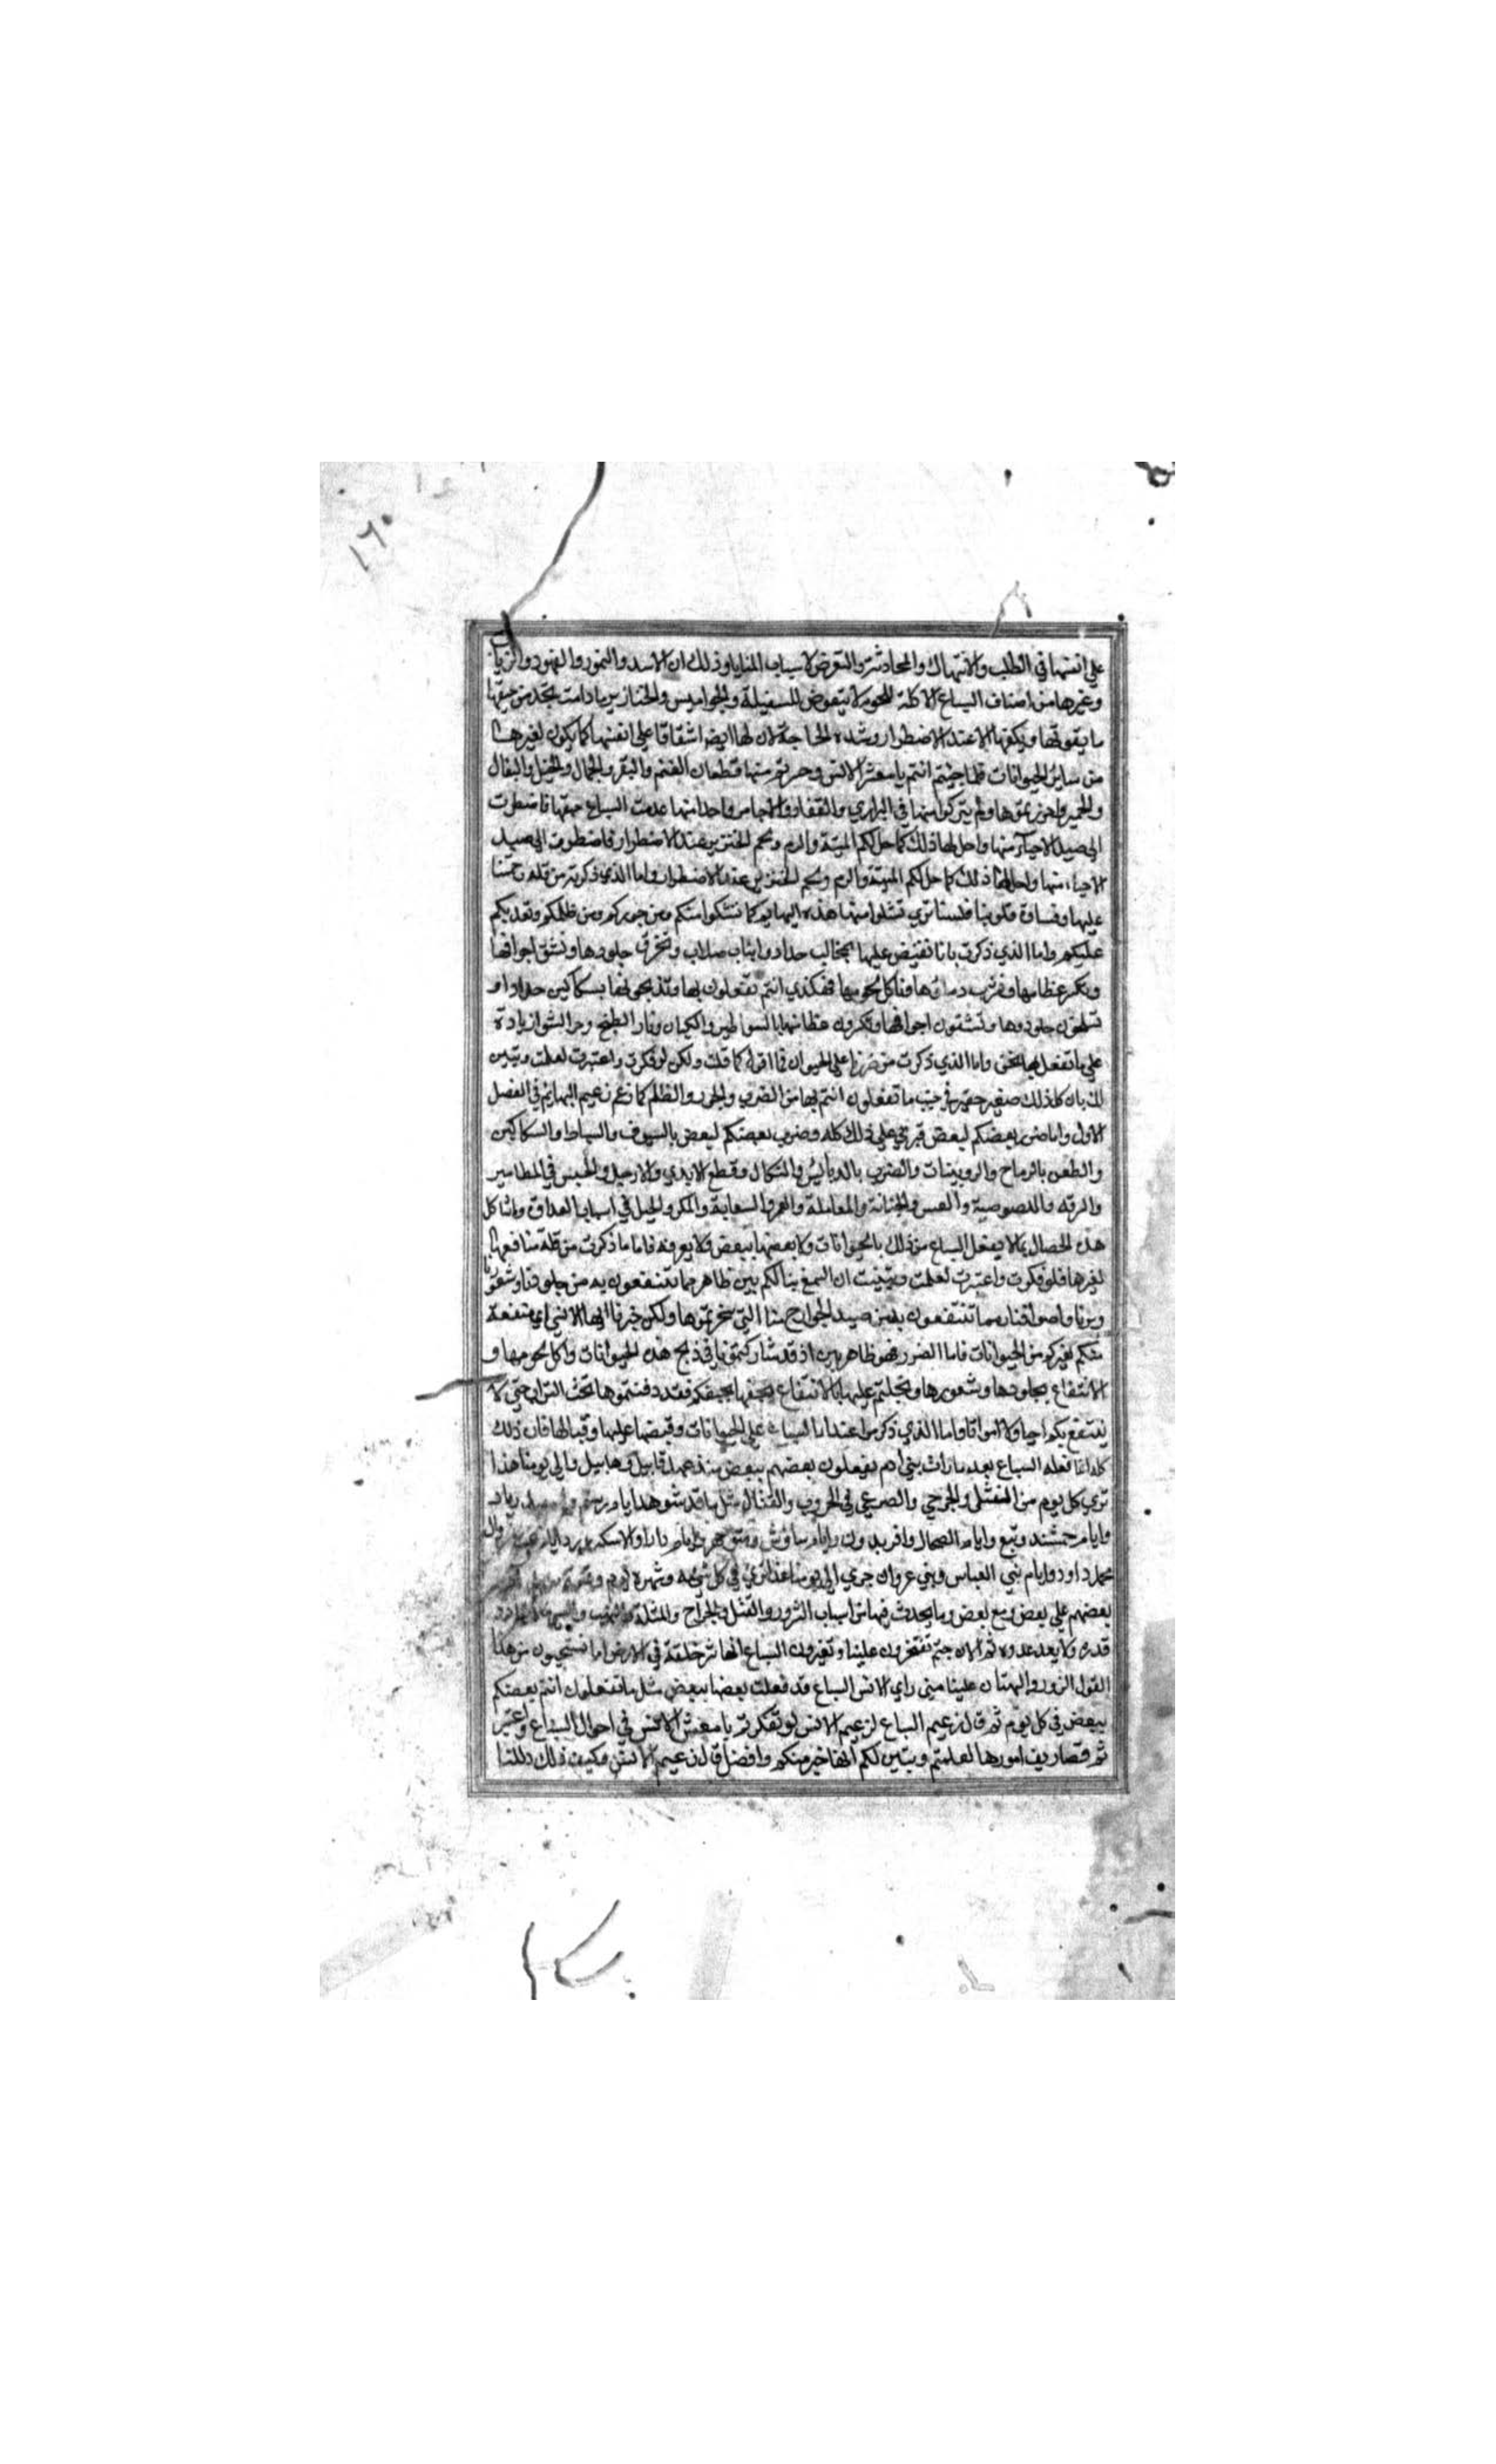 ١٦٠
علي انفسها في الطلب والانتهاك والمحادثة والتعرض لاسباب المنايا وذلك ان الاسد والنمور والفهود والذياب
وغيرها من اصناف السباع الاكلة للحوم لا تتعرض للسفيلة والجواميس والخنازير ما دامت تجد من جيفها
ما يقوتها ويكفيها الا عند الاضطرار وشدة الحاجة لان لها ايضا اشفاقا علي انفسها كما يكون لغيرها
من ساير الحيوانات فلما جيتم انتم يا معشر الانس وحرتم منها قطعان الغنم والبقر والجمال والخيل والبغال
والحمير واحرزتموها ولم يتركوا منها في البراري والقفار والاجام واحدا منها عدمت السباع جيفها فاضطرت
الي صيد الاحياء منها واحل لها ذلك كما حل لكم الميتة والدم ولحم الخنزير عند الاضطرار فاضطرت الي صيد
الاحياء منها واحل لها ذلك كما حل لكم الميتة والدم ولحم الخنزير عند الاضطرار واما الذي ذكرته من قلة رحمتنا
عليها وقساوة قلوبنا فلسنا نري تشكوا منها هذه البهايم كما تشكوا منكم ومن جوركم ومن ظلمكم وتعديكم
عليكم واما الذي ذكرت بانا نقبض عليها بمخالب حداد وانياب صلاب ونخرق جلودها ونشق اجوافها
ونكسر عظامها ونشرب دماءها وناكل لحومها فهكذي انتم تفعلون بها وتذبحونها بسكاكين حداد او
تسلخون جلودها وتشقون اجوافها وتكسرون عظامها بالسواطير والكيمان ونار الطبخ وحر الشوا زيادة
علي ما تفعل بها نحن واما الذي ذكرت من ضررنا علي الحيوان فما اقوله كما قلت ولكن لو فكرت واعتبرت لعلمت وتبين
لك بان كل ذلك صغير حقير في جنب ما تفعلون انتم بها من الضرب والجور والظلم كما زعم زعيم البهايم في الفصل
الاول واما ضرب بعضكم لبعض فيربي علي ذلك كله وضرب بعضكم لبعض بالسيوف والسياط والسكاكين
والطعن بالرماح والزوبينات والضرب بالدبابيس والنكال وقطع الايدي والارجل والحبس في المطامير
والسرقة واللصوصية والغش والخيانة والمعاملة والغمز والسعاية والمكر والحيل في اسباب العداوة وما شاكل
هذه الخصال مما لا يفعل السباع من ذلك بالحيوانات ولا بعضها ببعض ولا يعرفه فاما ما ذكرت من قلة منافعها
لغيرها فلو فكرت واعتبرت لعلمت وتبينت ان النفع بنا لكم بين ظاهر مما تنتفعون به من جلودنا وشعورنا
وبرنا واصوافنا ومما تنتفعون به من صيد الجوارح منا التي سخرتموها ولكن خبرنا ايها الانسي اي منفعة
منكم لغيركم من الحيوانات فاما الضرر فهو ظاهر بين اذ قد شاركتمونا في ذبح هذه الحيوانات واكل لحومها و
الانتفاع بجلودها وشعورها وبخلتم علينا بالانتفاع بجيفكم فقد دفنتموها تحت التراب حتي لا
ينتفع بكم احيا ولا امواتا واما الذي ذكر من اعتداء السباع علي الحيوانات وقبضها عليها وقتالها فان ذلك
كله انما فعله السباع بعد ما رات بني ادم يفعلون بعضهم ببعض منذ عهد قابيل وهابيل والي يومنا هذا
نري كل يوم من القتلي والجرحي والصرعي في الحروب والقتال مثل ما قد شوهد ايام رستم واسفنديار
وايام جمشيد وتبع وايام الضحاك وافريدون وايام سياوش ومنوجهر وايام دارا والاسكندر
محمد داود وايام بني العباس وبني مروان جري الي يومنا هذا نري في كل سنة وشهر
بعضهم علي بعض ومع بعض وما يحدث فيها من اسباب الشرور والقتل والجراح والمثلة والنهب
قدره ولا يعد عدوه ثم الان جيتم تفتخرون علينا وتعيرون السباع انها شر خلقة في الارض اما تستحيون من هذا
القول الزور والبهتان علينا متي راي الانس السباع قد فعلت بعضها ببعض مثل ما تفعلون انتم بعضكم
ببعض في كل يوم ثم قال زعيم السباع لزعيم الانس لو تفكرتم يا معشر الانس في احوال السباع واعتبر
تم تصاريف امورها لعلمتم وتبين لكم انها خير منكم وافضل قال زعيم الانس وكيف ذلك دللنا